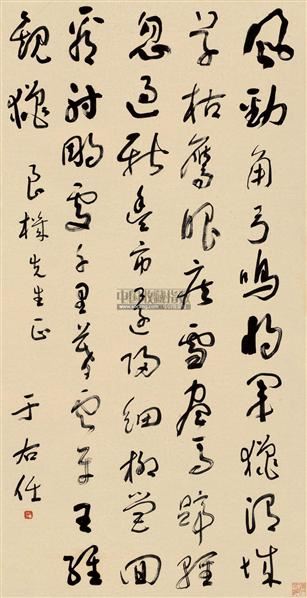 風勁角弓鳴將軍獵渭城
草枯鷹眼疾雪盡馬蹄輕
忽過新豐市還歸細柳營回
看射鵰處千里暮雲平王維
觀獵
良 先生正
于右任